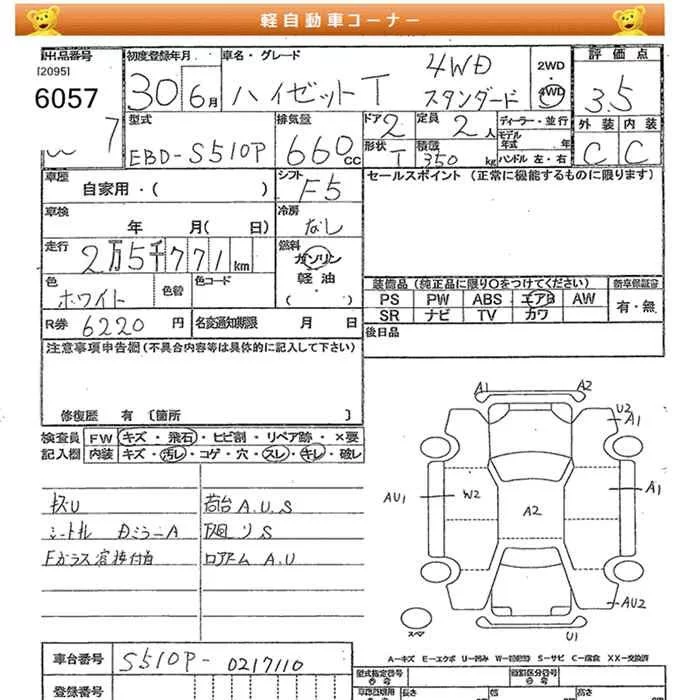 軽自動車コーナー
出品番号
[2095]
6057
7
初度登録年月
30 6月
車名・グレード
ハイゼットT 4WD
スタンダード
2WD
4WD
評価点
3.5
型式
EBD-S510P
排気量
660cc
ドア 2
定員 2人
形状 T
積載 350kg
ディーラー・並行
モデル年式 年
ハンドル 左・右
外装 内装
C C
車歴
自家用・( )
シフト
F5
セールスポイント (正常に機能するものに限ります)
車検
年 月( 日)
冷房
なし
走行
2万5千771km
燃料
ガソリン
軽油
( ・ )
色
ホワイト
色替
色コード
装備品 (純正品に限り○をつけてください)
新車保証書
PS PW ABS エアB AW
SR ナビ TV カワ
有・無
R券 6220円
名変通知期限 月 日
後日品
注意事項申告欄 (不具合内容等は具体的に記入して下さい)
修復歴 有 〔箇所 〕
検査員記入欄
FW キズ・飛石・ヒビ割・リペア跡・×要
内装 キズ・汚レ・コゲ・穴・スレ・キレ・破レ
キズU 荷台A.U.S
シートル DミラーA 下廻りS
Fガラス溶接付着 ロアアームA.U
A1 A2
U2
A1
AU1 W2 A2 A1
AU2
スペア U1
A-キズ E-エクボ U-凹み W-補修跡 S-サビ C-腐食 XX-交換済
車台番号 S510P-0217110
登録番号
型式指定番号
号
類別区分番号
号
長さ 幅 高さ